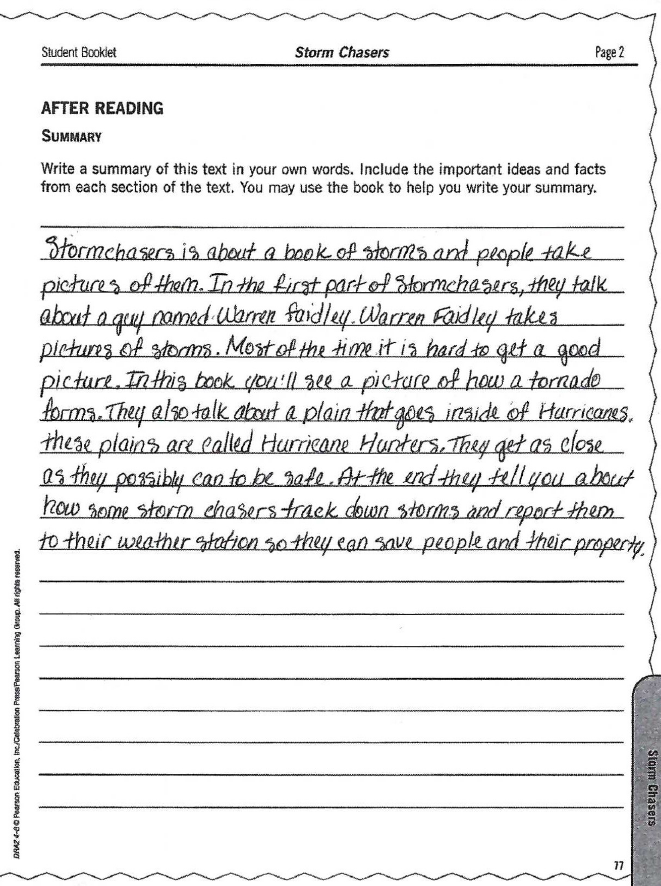 Student Booklet Storm Chasers Page 2
AFTER READING
SUMMARY
Write a summary of this text in your own words. Include the important ideas and facts
from each section of the text. You may use the book to help you write your summary.
Stormchasers is about a book of storms and people take
pictures of them. In the first part of Stormchasers, they talk
about a guy named Warren faidley. Warren Faidley takes
pictures of storms. Most of the time it is hard to get a good
picture. In this book you'll see a picture of how a tornado
forms. They also talk about a plain that goes inside of Hurricanes.
these plains are called Hurricane Hunters. They get as close
as they possibly can to be safe. At the end they tell you about
how some storm chasers track down storms and report them
to their weather station so they can save people and their property.
DRA2 4–8 © Pearson Education, Inc./Celebration Press/Pearson Learning Group. All rights reserved.
Storm Chasers
77